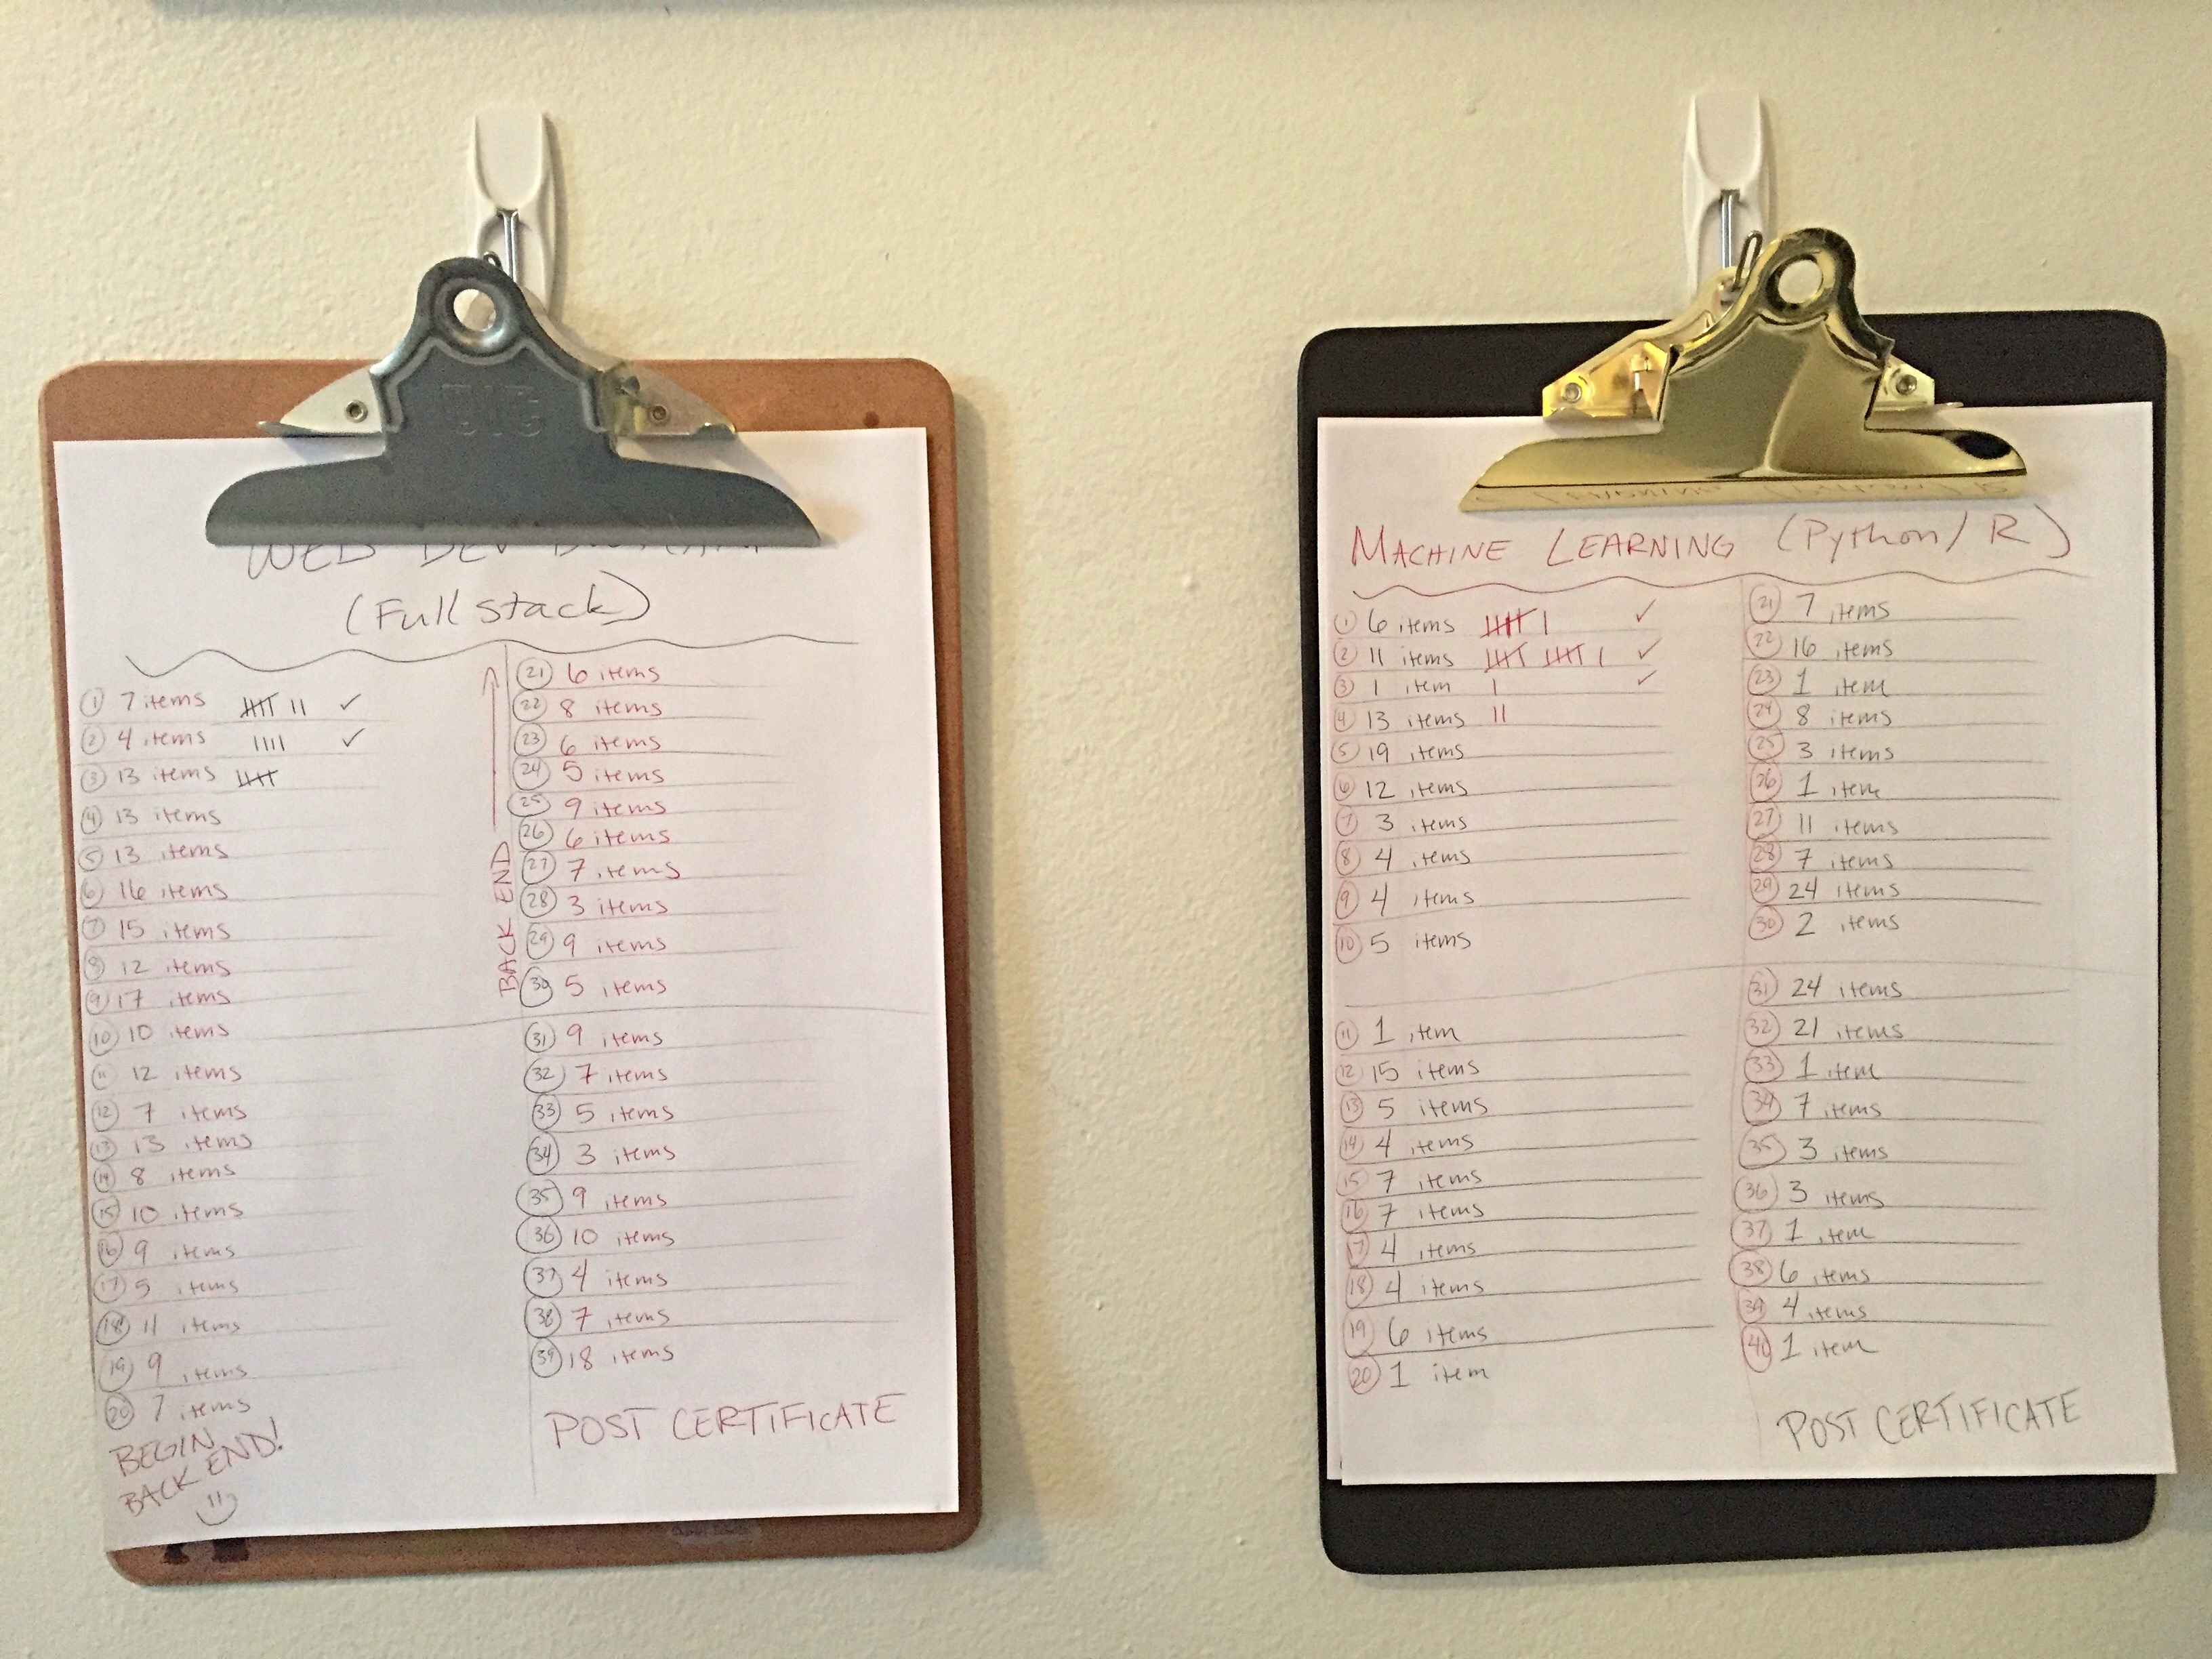 WEB DEV BOOTCAMP
(Full stack)
1 7 items |||| || ✓
2 4 items |||| ✓
3 13 items ||||
4 13 items
5 13 items
6 16 items
7 15 items
8 12 items
9 17 items
10 10 items
11 12 items
12 7 items
13 13 items
14 8 items
15 10 items
16 9 items
17 5 items
18 11 items
19 9 items
20 7 items
BEGIN
BACK END!
BACK END
21 6 items
22 8 items
23 6 items
24 5 items
25 9 items
26 6 items
27 7 items
28 3 items
29 9 items
30 5 items
31 9 items
32 7 items
33 5 items
34 3 items
35 9 items
36 10 items
37 4 items
38 7 items
39 18 items
POST CERTIFICATE
MACHINE LEARNING (Python/R)
1 6 items |||| | ✓
2 11 items |||| |||| | ✓
3 1 item | ✓
4 13 items ||
5 19 items
6 12 items
7 3 items
8 4 items
9 4 items
10 5 items
11 1 item
12 15 items
13 5 items
14 4 items
15 7 items
16 7 items
17 4 items
18 4 items
19 6 items
20 1 item
21 7 items
22 16 items
23 1 item
24 8 items
25 3 items
26 1 item
27 11 items
28 7 items
29 24 items
30 2 items
31 24 items
32 21 items
33 1 item
34 7 items
35 3 items
36 3 items
37 1 item
38 6 items
39 4 items
40 1 item
POST CERTIFICATE